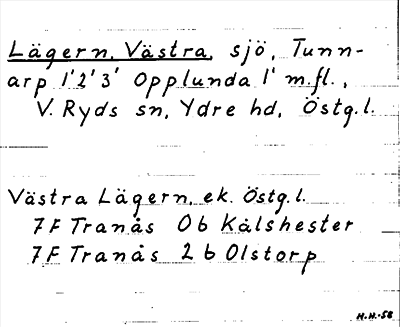 Lägern, Västra, sjö, Tunn-
arp 1'2'3' Opplunda 1' m.fl.,
V. Ryds sn, Ydre hd, Östg.l.
Västra Lägern, ek. Östg.l.
7F Tranås 0b Kålshester
7F Tranås 2b Olstorp
H.H.-58